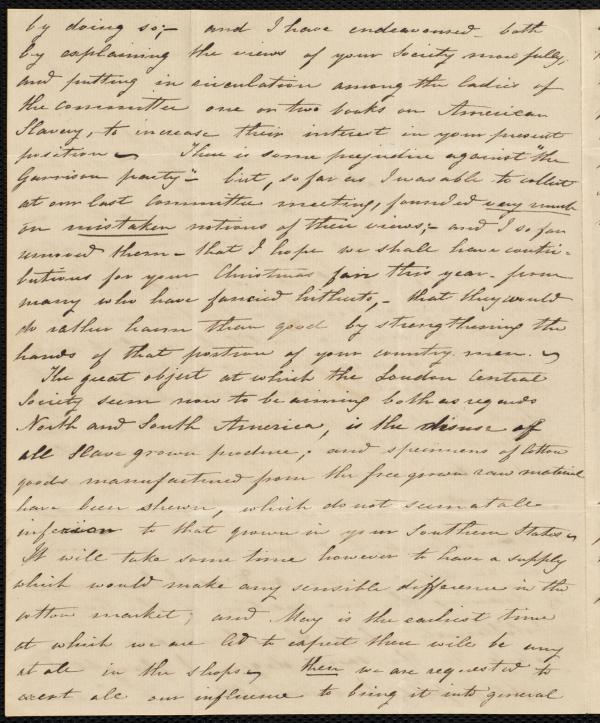 by doing so;- and I have endeavoured both
by explaining the views of your Society more fully,
and putting in circulation among the ladies of
the committee one or two books on American
Slavery, to increase their interest in your present
position - There is some prejudice against "the
Garrison party" - but, so far as I was able to collect
at our last committee meeting, founded very much
on mistaken notions of their views;- and I so far
removed them - that I hope we shall have contri-
butions for your Christmas fair this year - from
many who have fancied hitherto, - that they would
do rather harm than good by strengthening the
hands of that portion of your country-men. -
The great object at which the London Central
Society seem now to be aiming both as regards
North and South America, is the disuse of
all Slave grown produce; and specimens of Cotton
goods manufactured from the free grown raw material
have been shewn, which do not seem at all
inferior to that grown in your Southern States -
It will take some time however to have a supply
which would make any sensible difference in the
cotton market; and May is the earliest time
at which we are led to expect there will be any
at all in the shops - then we are requested to
exert all our influence to bring it into general